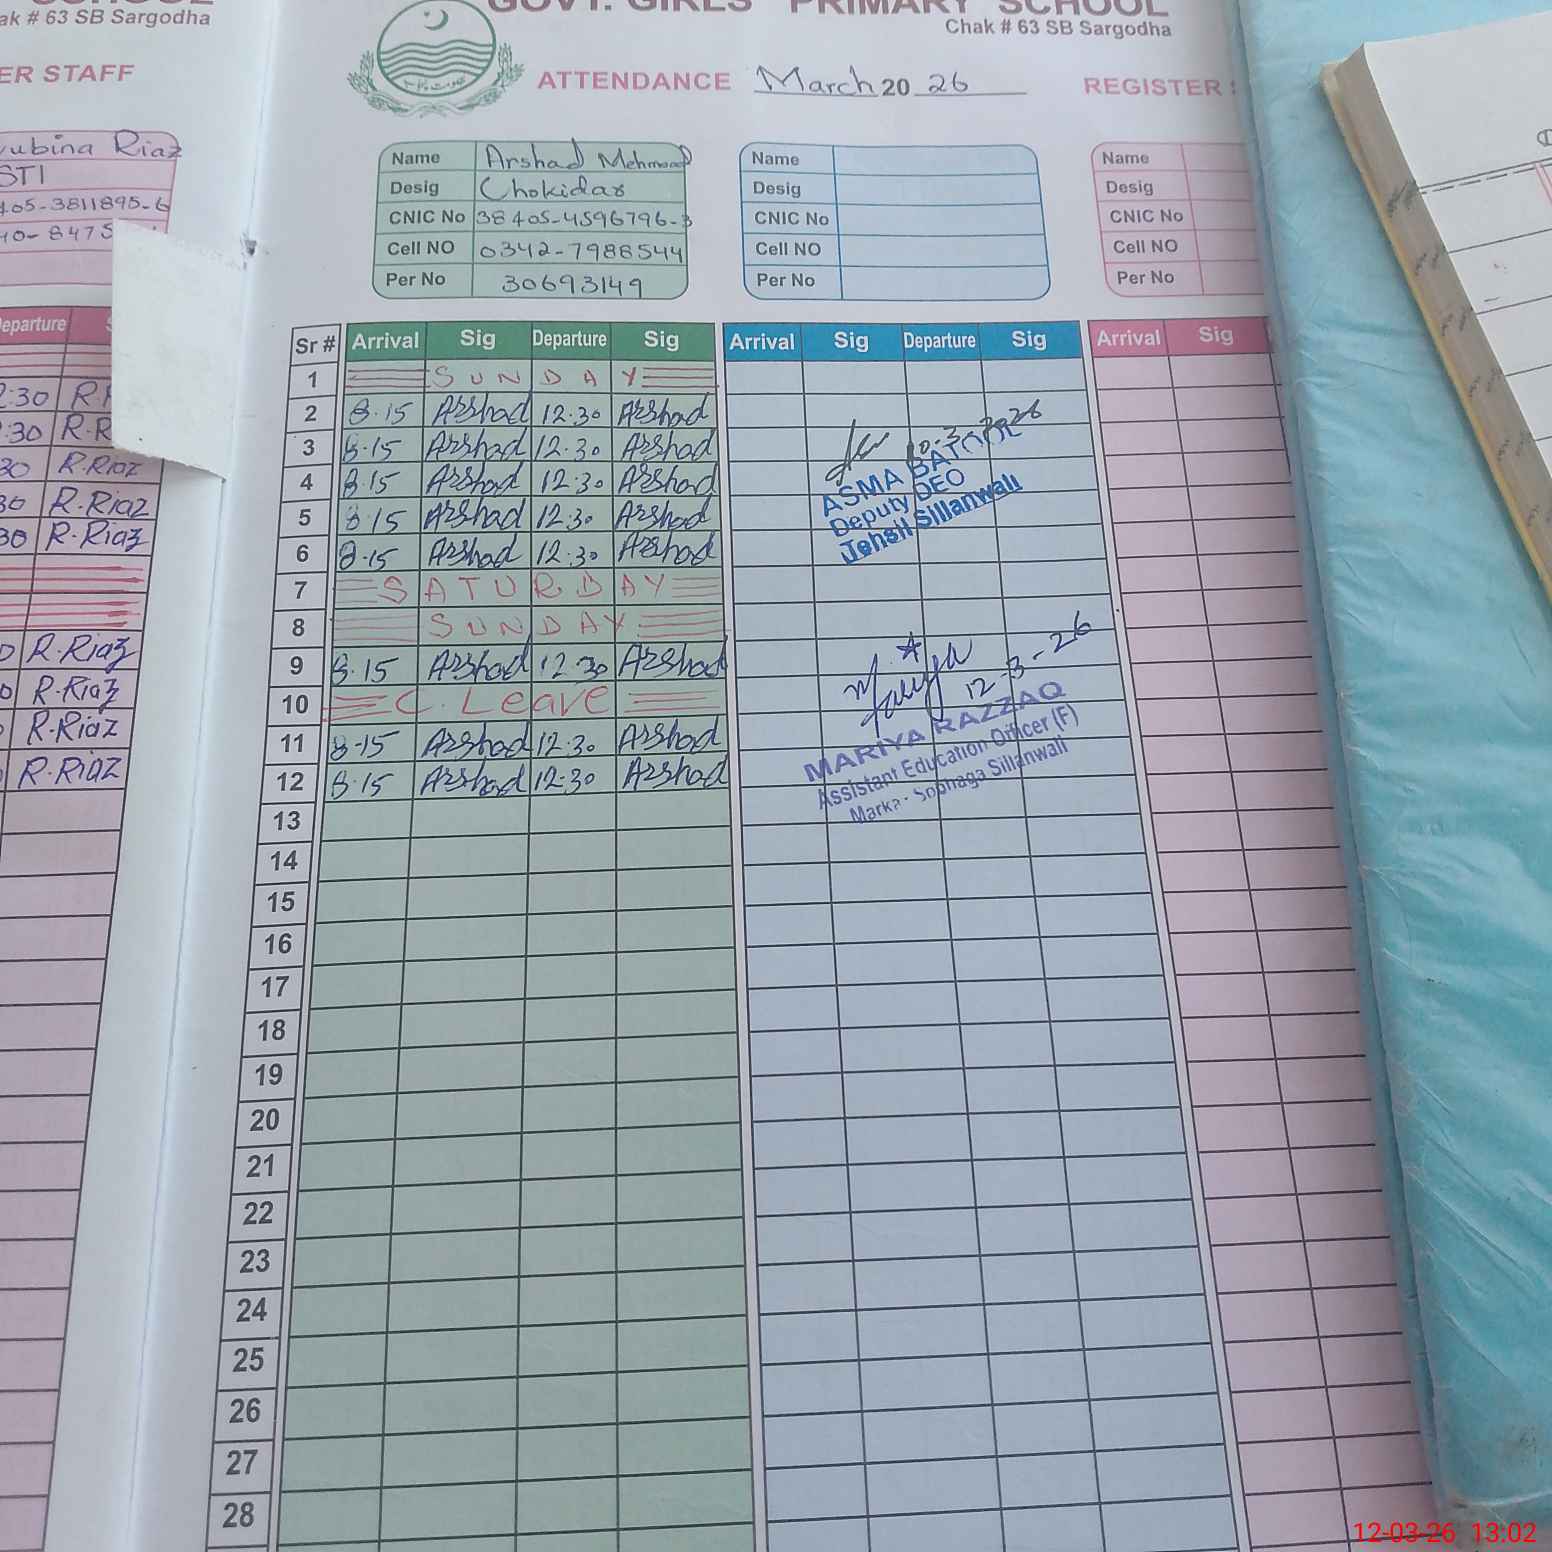 ak # 63 SB Sargodha
ER STAFF
ubina Riaz
STI
405-3811895-6
40-8475
Departure
2:30 R.R
:30 R.R
30 R.Riaz
30 R.Riaz
30 R.Riaz
R.Riaz
R.Riaz
R.Riaz
R.Riaz
GOVT. GIRLS PRIMARY SCHOOL
Chak # 63 SB Sargodha
ATTENDANCE March 2026 REGISTER
Name Arshad Mehmood
Desig Chokidar
CNIC No 38405-4596796-3
Cell NO 0342-7988544
Per No 30693149
Name
Desig
CNIC No
Cell NO
Per No
Name
Desig
CNIC No
Cell NO
Per No
Sr # Arrival Sig Departure Sig Arrival Sig Departure Sig Arrival Sig
1 SUNDAY
2 8.15 Arshad 12.30 Arshad
3 8.15 Arshad 12.30 Arshad
4 8.15 Arshad 12.30 Arshad
5 8.15 Arshad 12.30 Arshad
6 8.15 Arshad 12.30 Arshad
7 SATURDAY
8 SUNDAY
9 8.15 Arshad 12.30 Arshad
10 C. Leave
11 8-15 Arshad 12.30 Arshad
12 8.15 Arshad 12.30 Arshad
13
14
15
16
17
18
19
20
21
22
23
24
25
26
27
28
10-3-2026
ASMA BATOOL
Deputy DEO
Tehsil Sillanwali
12-3-26
MARIYA RAZZAQ
Assistant Education Officer (F)
Marka Sobhaga Sillanwali
12-03-26 13:02